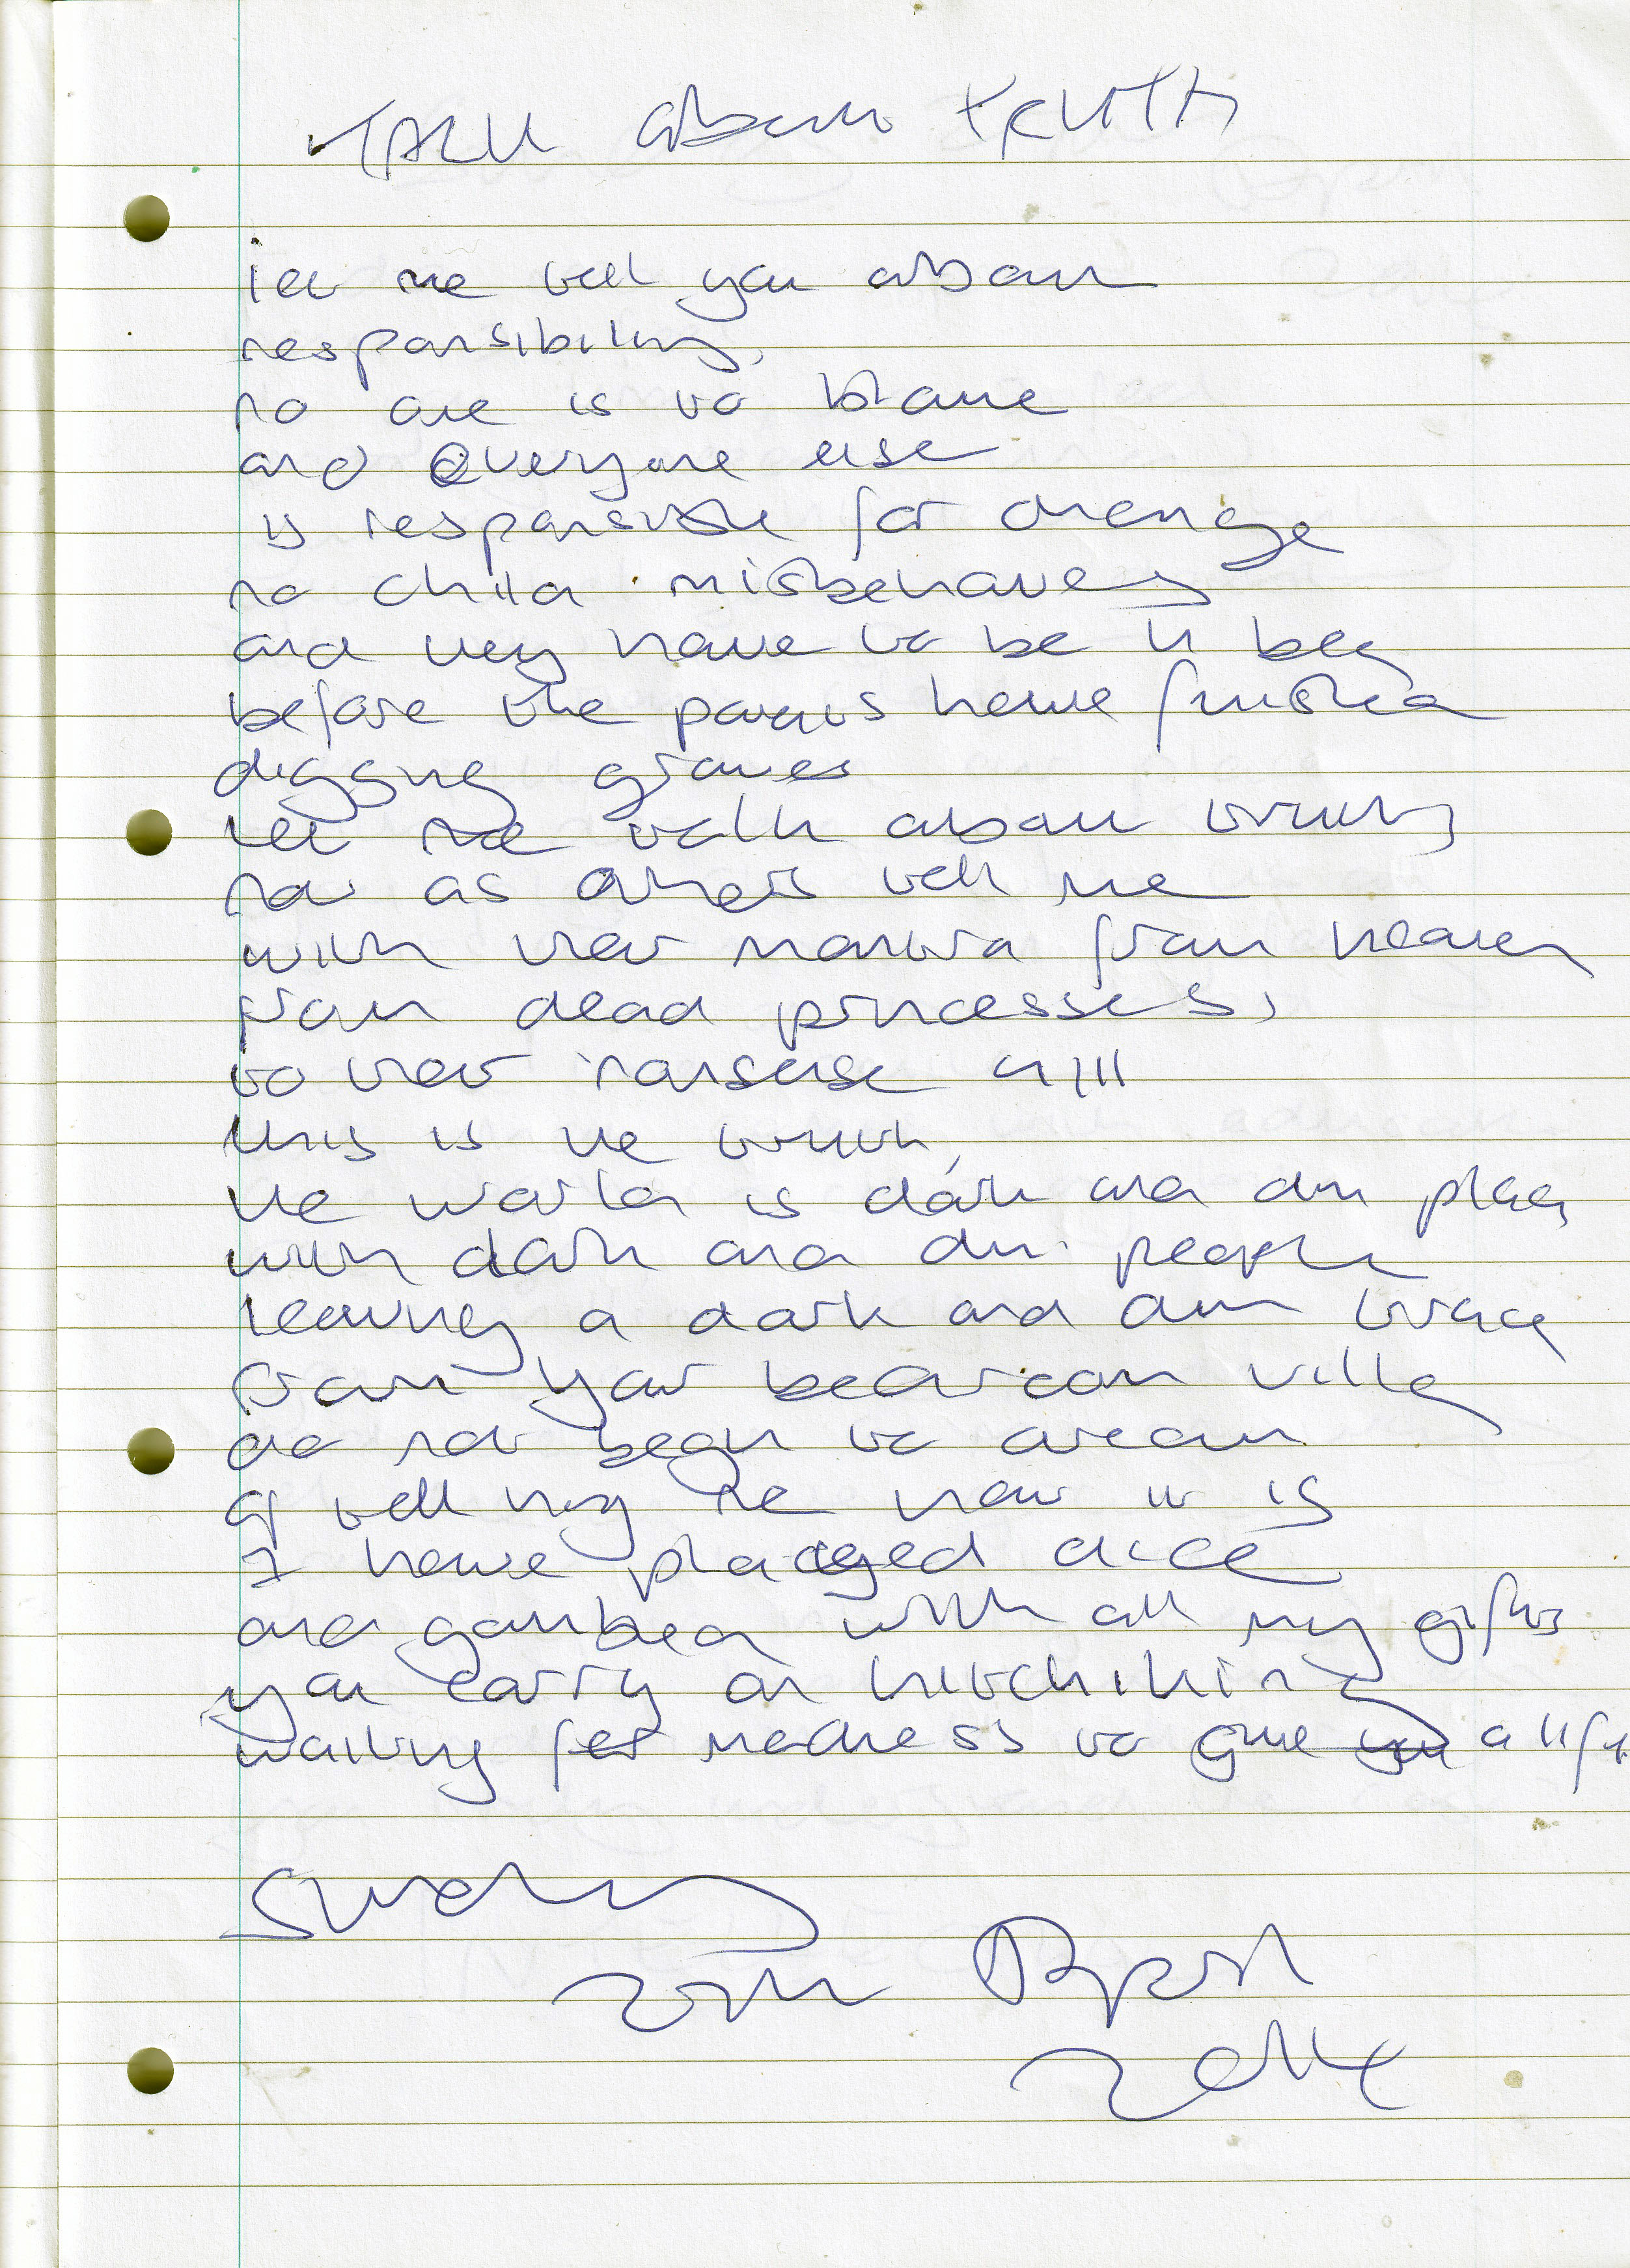 TALK about TRUTH
let me tell you about
responsibility,
no one is to blame
and everyone else
is responsible for change
no child misbehaves
and they have to be in bed
before the parents have finished
digging graves
let me talk about truth
not as others tell me
with their mantra from heaven
from dead princesses,
to their nonsense
this is the truth,
the world is dark and dim place
with dark and dim people
leaving a dark and dim trace
from your ville
do not begin to dream
of telling me how it is
I have played dice
and gambled with all my gifts
you carry on hitchhiking
waiting for madness to give you a life
2014